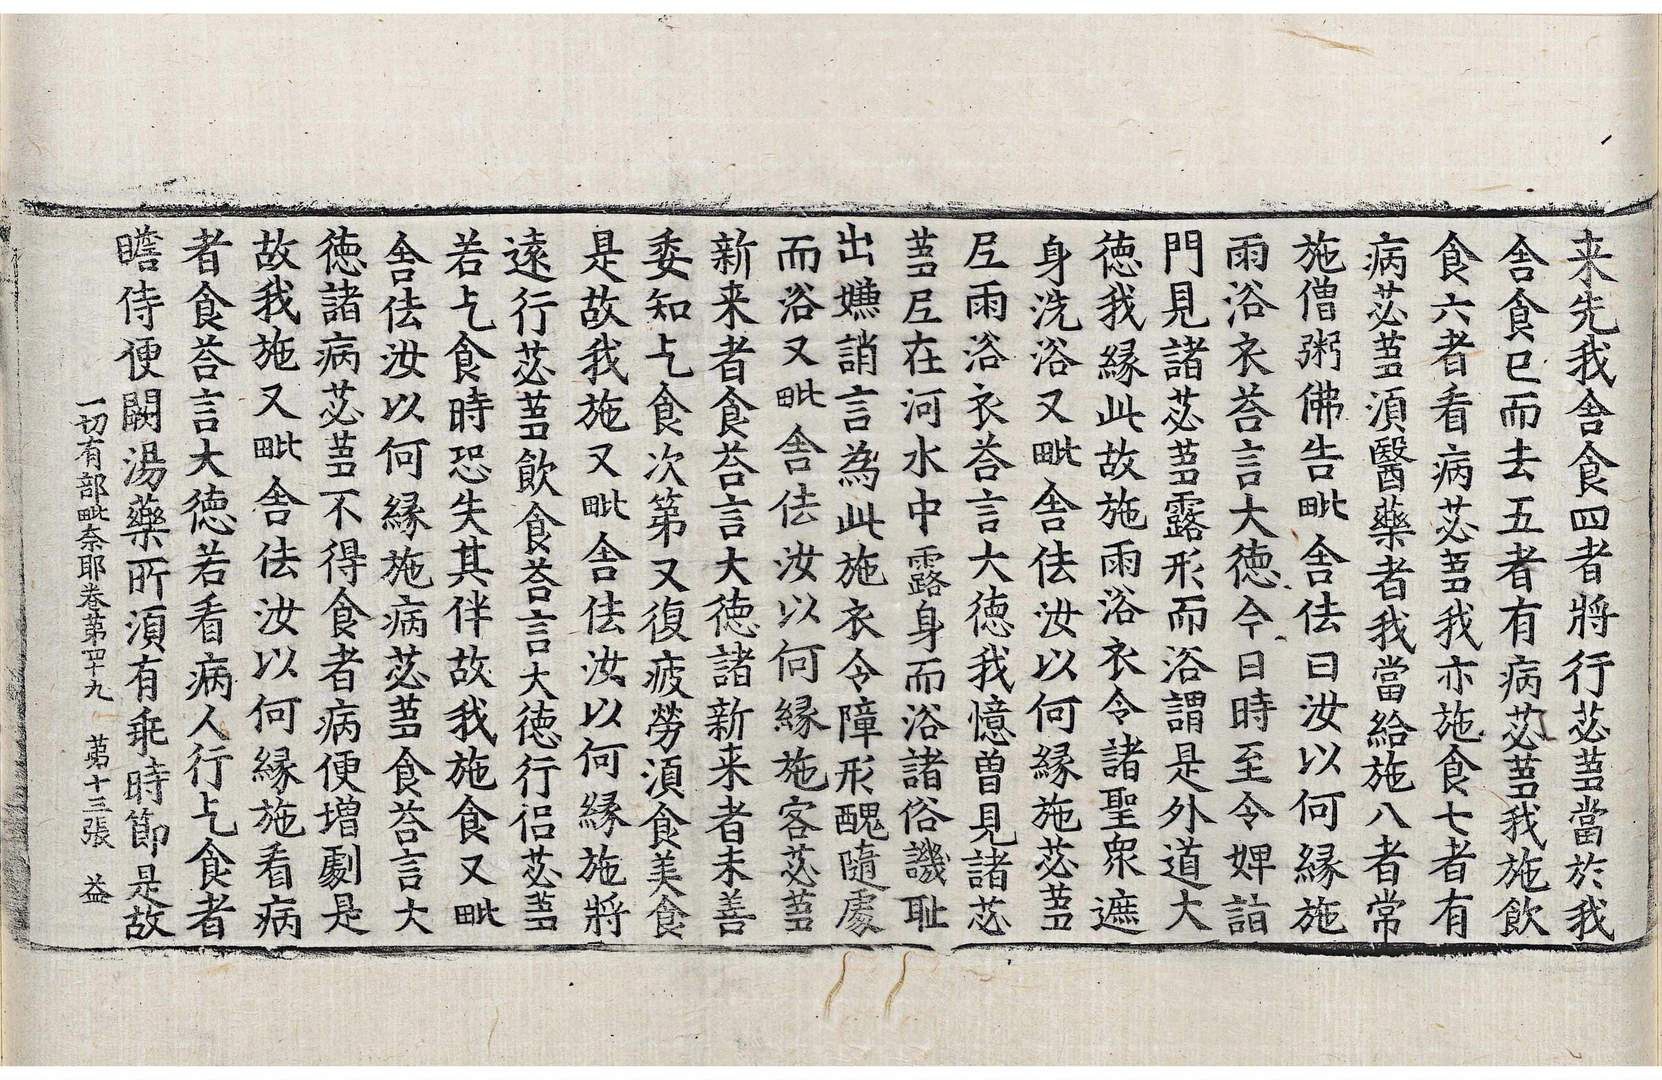 来先我舍食四者將行苾蒭當於我
舍食已而去五者有病苾蒭我施飲
食六者看病苾蒭我亦施食七者有
病苾蒭湏醫藥者我當給施八者常
施僧粥佛告毗舍佉曰汝以何縁施
雨浴衣荅言大徳今日時至令婢詣
門見諸苾蒭露形而浴謂是外道大
徳我縁此故施雨浴衣令諸聖衆遮
身洗浴又毗舍佉汝以何縁施苾蒭
尼雨浴衣荅言大徳我憶曽見諸苾
蒭尼在河水中露身而浴諸俗譏耻
出嫌誚言為此施衣令障形醜隨處
而浴又毗舍佉汝以何縁施客苾蒭
新来者食荅言大徳諸新来者未善
委知乞食次第又復疲勞湏食美食
是故我施又毗舍佉汝以何縁施將
遠行苾蒭飲食荅言大徳行侣苾蒭
若乞食時恐失其伴故我施食又毗
舍佉汝以何縁施病苾蒭食荅言大
徳諸病苾蒭不得食者病便増劇是
故我施又毗舍佉汝以何縁施看病
者食荅言大徳若看病人行乞食者
瞻侍便闕湯藥所湏有乖時節是故
一切有部毗奈耶卷第四十九 第十三張 益